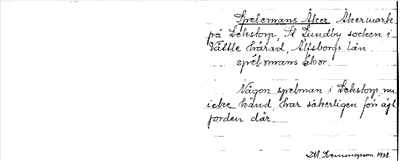 Spelemans Åker Åkermark
på Lekstorp, St Lundby socken i
Vättle härad, Älfsborgs län
spelmans åker.
Någon spelman i Lekstorp nu
icke känd. Har säkerligen förr ägt
jorden där.
1928